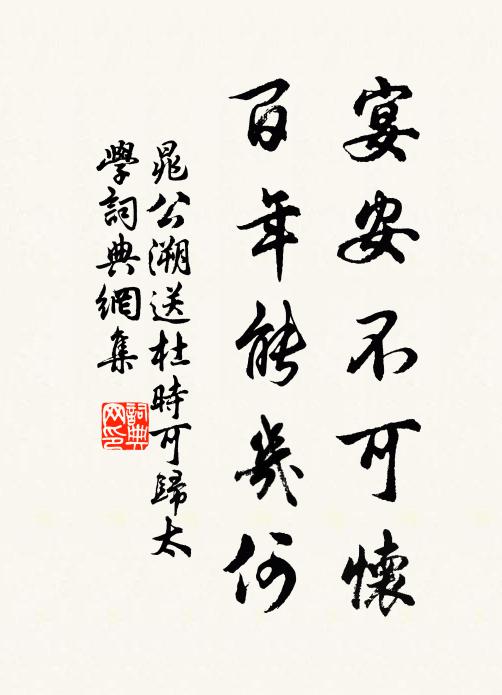 宴安不可懷
百年能幾何
晁公溯送杜時可歸太
學詞典網集
詞典
网印